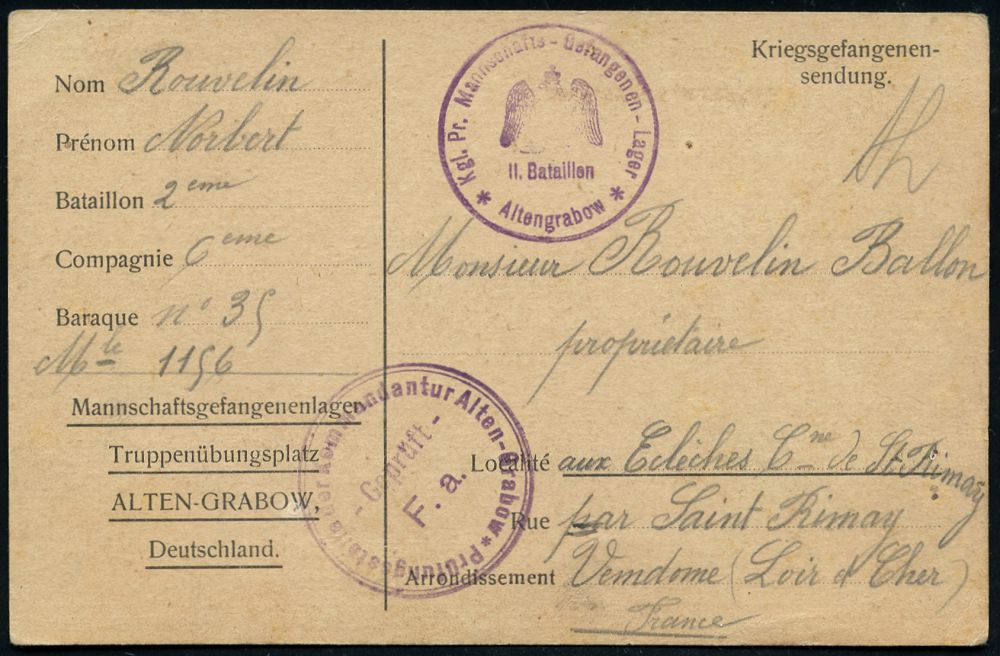 Nom Rouvelin
Prénom Norbert
Bataillon 2eme
Compagnie 6eme
Baraque n° 35
Mle 1156
Mannschaftsgefangenenlager
Truppenübungsplatz
ALTEN-GRABOW,
Deutschland.
Kgl. Pr. Mannschafts-Gefangenen-Lager
II. Bataillon
* Altengrabow *
Kriegsgefangenen-
sendung.
Monsieur Rouvelin Ballon
propriétaire
Localité aux Eclèches Cne de St Rimay
Rue par Saint Rimay
Arrondissement Vemdome (Loir et Cher)
France
Prüfungsstelle der Kommandantur Alten-Grabow *
- Geprüft -
F. a.